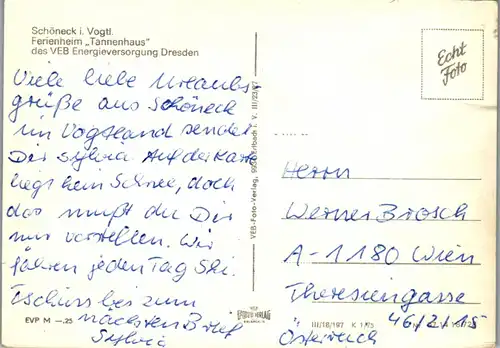 Schöneck i. Vogtl.
Ferienheim „Tannenhaus"
des VEB Energieversorgung Dresden
Viele liebe Urlaubs
grüße aus Schöneck
im Vogtland sendet
Dir Sylvia Auf der Karte
liegt kein Schnee, doch
das mußt du Dir
nur vorstellen. Wir
fahren jeden Tag Ski.
Tschüss bis zum
nächsten Brief
Sylvia
EVP M —.25
VEB-Foto-Verlag, Erlbach i. V.
Echt
Foto
Herrn
Werner Brosch
A-1180 Wien
Theresiengasse
46/2/15
Österreich
III/18/197 K 1/75